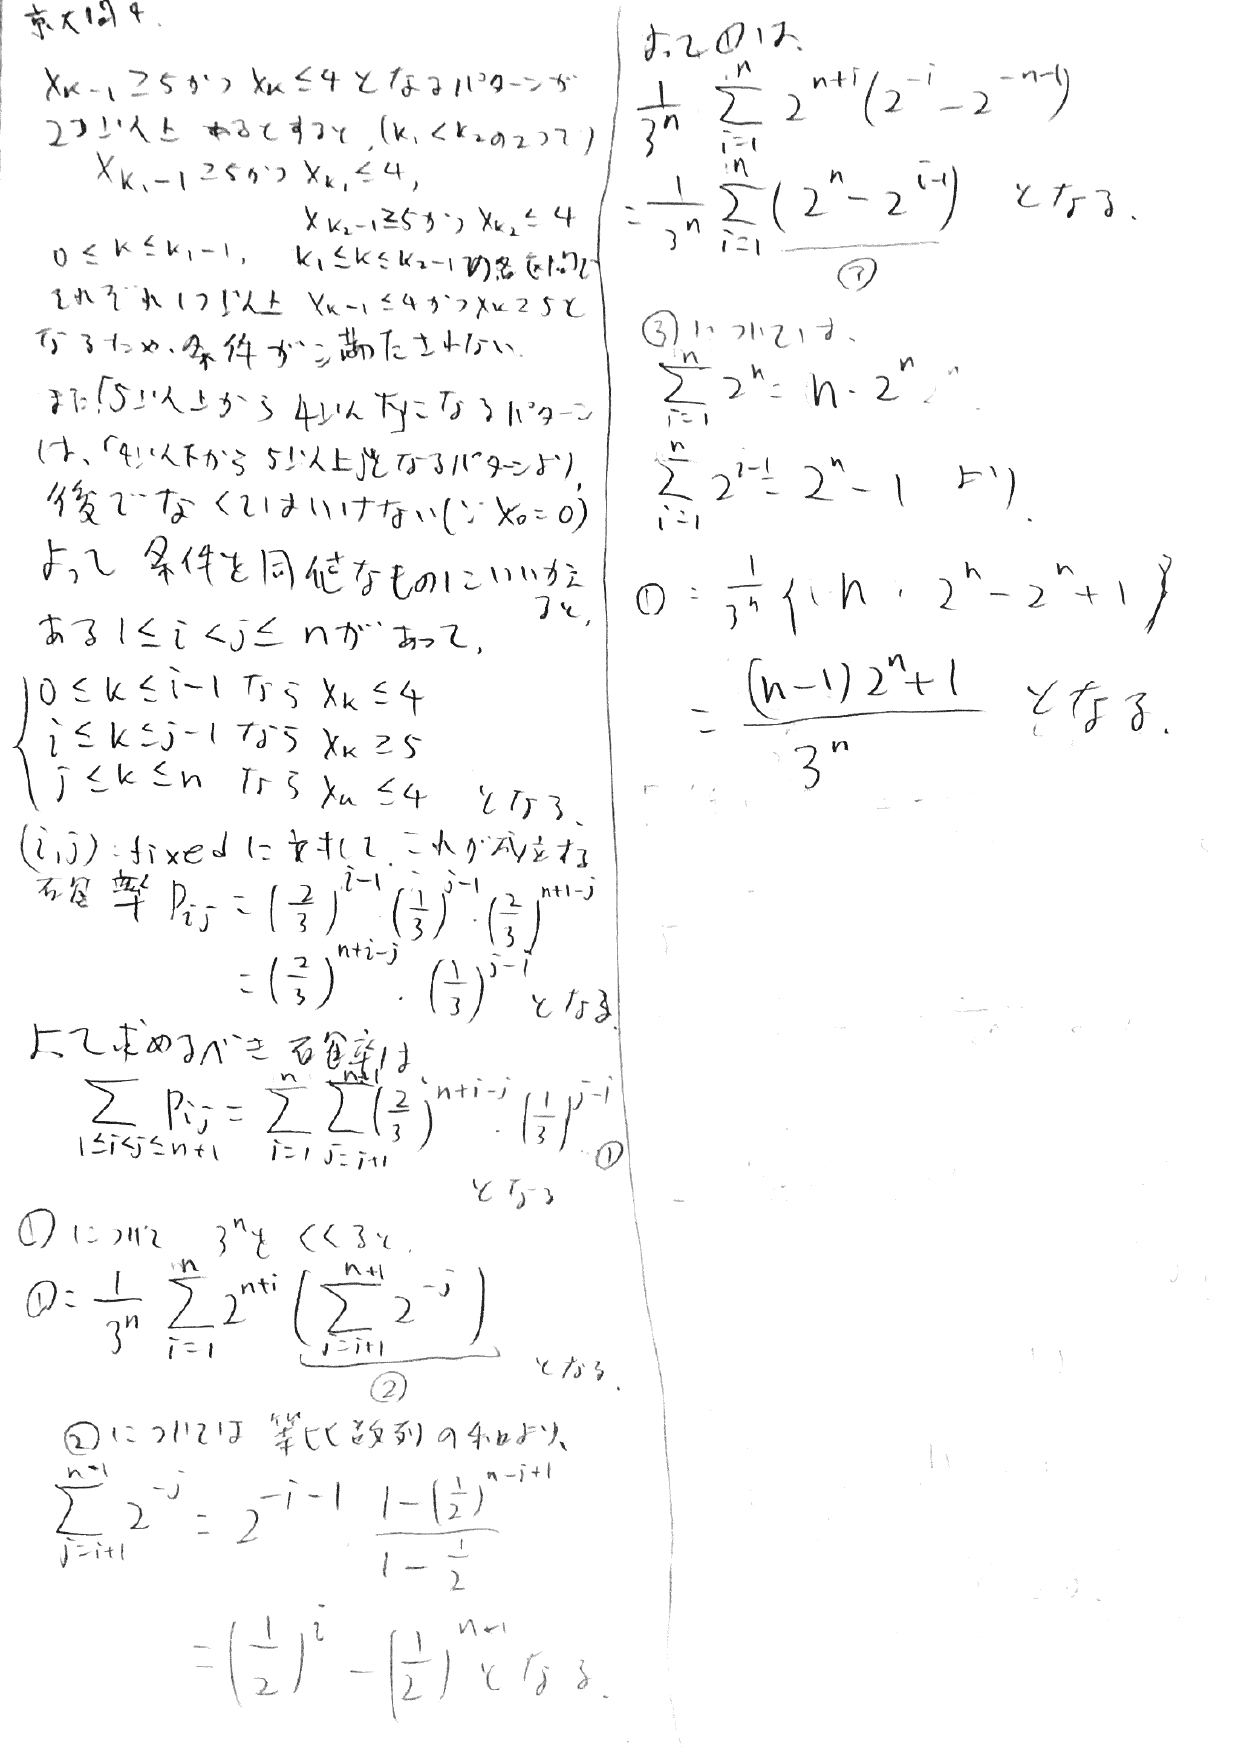 京大 問4.
X_{k-1} ≥ 5 かつ X_k ≤ 4 となるパターンが
2つ以上 あるとすると、(k_1 < k_2 の2つで)
X_{k_1-1} ≥ 5 かつ X_{k_1} ≤ 4,
X_{k_2-1} ≥ 5 かつ X_{k_2} ≤ 4
0 ≤ k ≤ k_1-1, k_1 ≤ k ≤ k_2-1 の各区間で
それぞれ1つ以上 X_{k-1} ≤ 4 かつ X_k ≥ 5 と
なるため、条件が満たされない.
また「5以上から4以下」になるパターン
は、「4以下から5以上」となるパターンより
後でなくてはいけない (∵ X_0 = 0)
よって 条件を同値なものにいいかえ
ると,
ある 1 ≤ i < j ≤ n があって,
0 ≤ k ≤ i-1 なら X_k ≤ 4
i ≤ k ≤ j-1 なら X_k ≥ 5
j ≤ k ≤ n なら X_k ≤ 4 となる、
(i,j) : fixed に対して これが成立する
確率 P_{ij} = (2/3)^{i-1} (1/3)^{j-1} · (2/3)^{n+1-j}
= (2/3)^{n+i-j} · (1/3)^{j-i} となる.
よって求めるべき確率は
Σ_{1≤i<j≤n+1} P_{ij} = Σ_{i=1}^{n} Σ_{j=i+1}^{n+1} (2/3)^{n+i-j} · (1/3)^{j-i} ①
となる
①について 3^n をくくると.
① = 1/3^n Σ_{i=1}^{n} 2^{n+i} (Σ_{j=i+1}^{n+1} 2^{-j})
② となる.
②については 等比数列の和より、
Σ_{j=i+1}^{n+1} 2^{-j} = 2^{-i-1} (1-(1/2)^{n-i+1})/(1-1/2)
= (1/2)^i - (1/2)^{n+1} となる.
よって①は、
1/3^n Σ_{i=1}^{n} 2^{n+i} (2^{-i} - 2^{-n-1})
= 1/3^n Σ_{i=1}^{n} (2^n - 2^{i-1}) となる.
③
③については、
Σ_{i=1}^{n} 2^n = n · 2^n
Σ_{i=1}^{n} 2^{i-1} = 2^n - 1 より.
① = 1/3^n { n · 2^n - 2^n + 1 }
= ((n-1) 2^n + 1)/3^n となる.